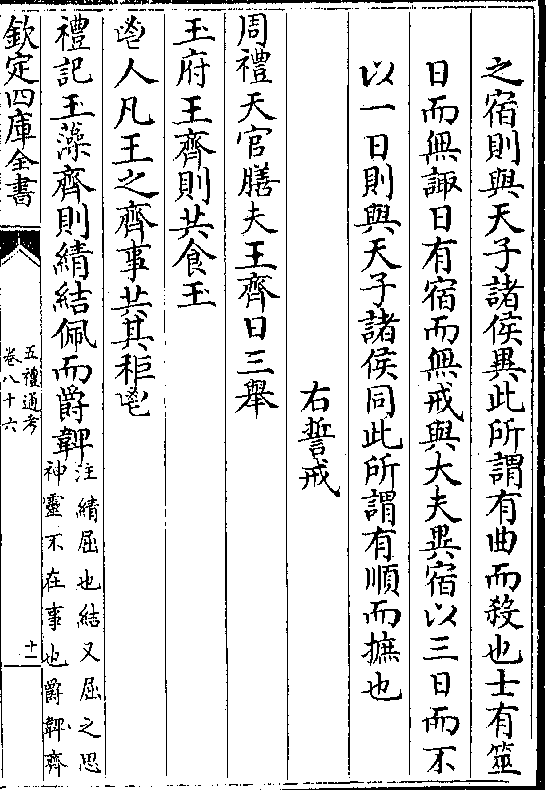 之宿則與天子諸侯異此所謂有曲而殺也士有筮
日而無諏日有宿而無戒與大夫異宿以三日而不
以一日則與天子諸侯同此所謂有順而摭也
右誓戒
周禮天官膳夫王齊日三舉
玉府王齊則共食玉
鬯人凡王之齊事共其秬鬯
禮記玉藻齊則綪結佩而爵韠
注綪屈也結又屈之思
神靈不在事也爵韠齊
欽定四庫全書
五禮通考
卷八十六
十二